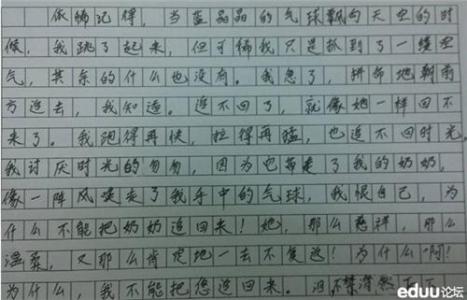 依稀记得，当蓝晶晶的气球飘向天空的时
候，我跳了起来，但可惜我只是抓到了一缕空
气，其余的什么也没有。我急了，拼命地朝前
方追去，我知道。追不回了，就像她一样回不
来了。我跑得再快，拉得再猛，也追不回时光。
我讨厌时光的匆匆，因为它带走了我的奶奶，
像一阵风嗖走了我手中的气球，我恨自己，为
什么不能把奶奶追回来！她，那么慈祥，那么
温柔，又那么肯定地一去不复返！为什么啊！
为什么，我不能把您追回来。泪不禁潸然而下
eduu论坛